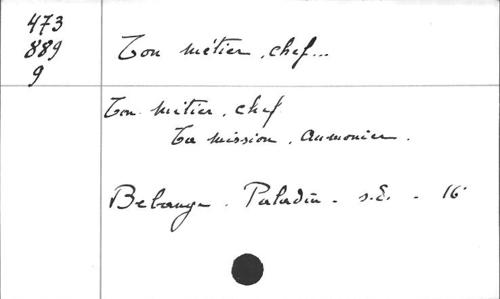 473
889
9
Ton métier, chef...
Ton métier, chef
Ta mission, aumonier.
Paladin - s.E. - 16